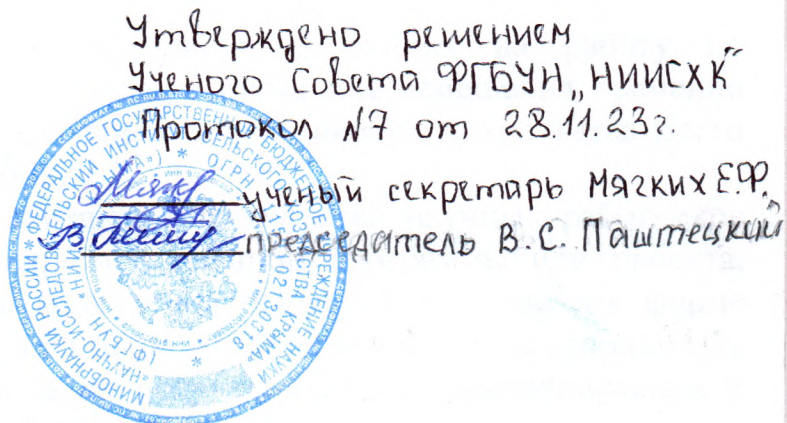 Утверждено решением
Ученого Совета ФГБУН „НИИСХК"
Протокол №7 от 28.11.23г.
ученый секретарь Мягких Е.Ф.
председатель В.С. Паштецкий
МИНОБРНАУКИ РОССИИ * ФЕДЕРАЛЬНОЕ ГОСУДАРСТВЕННОЕ БЮДЖЕТНОЕ УЧРЕЖДЕНИЕ НАУКИ
«НАУЧНО-ИССЛЕДОВАТЕЛЬСКИЙ ИНСТИТУТ СЕЛЬСКОГО ХОЗЯЙСТВА КРЫМА»
(ФГБУН «НИИСХ КРЫМА») * ОГРН